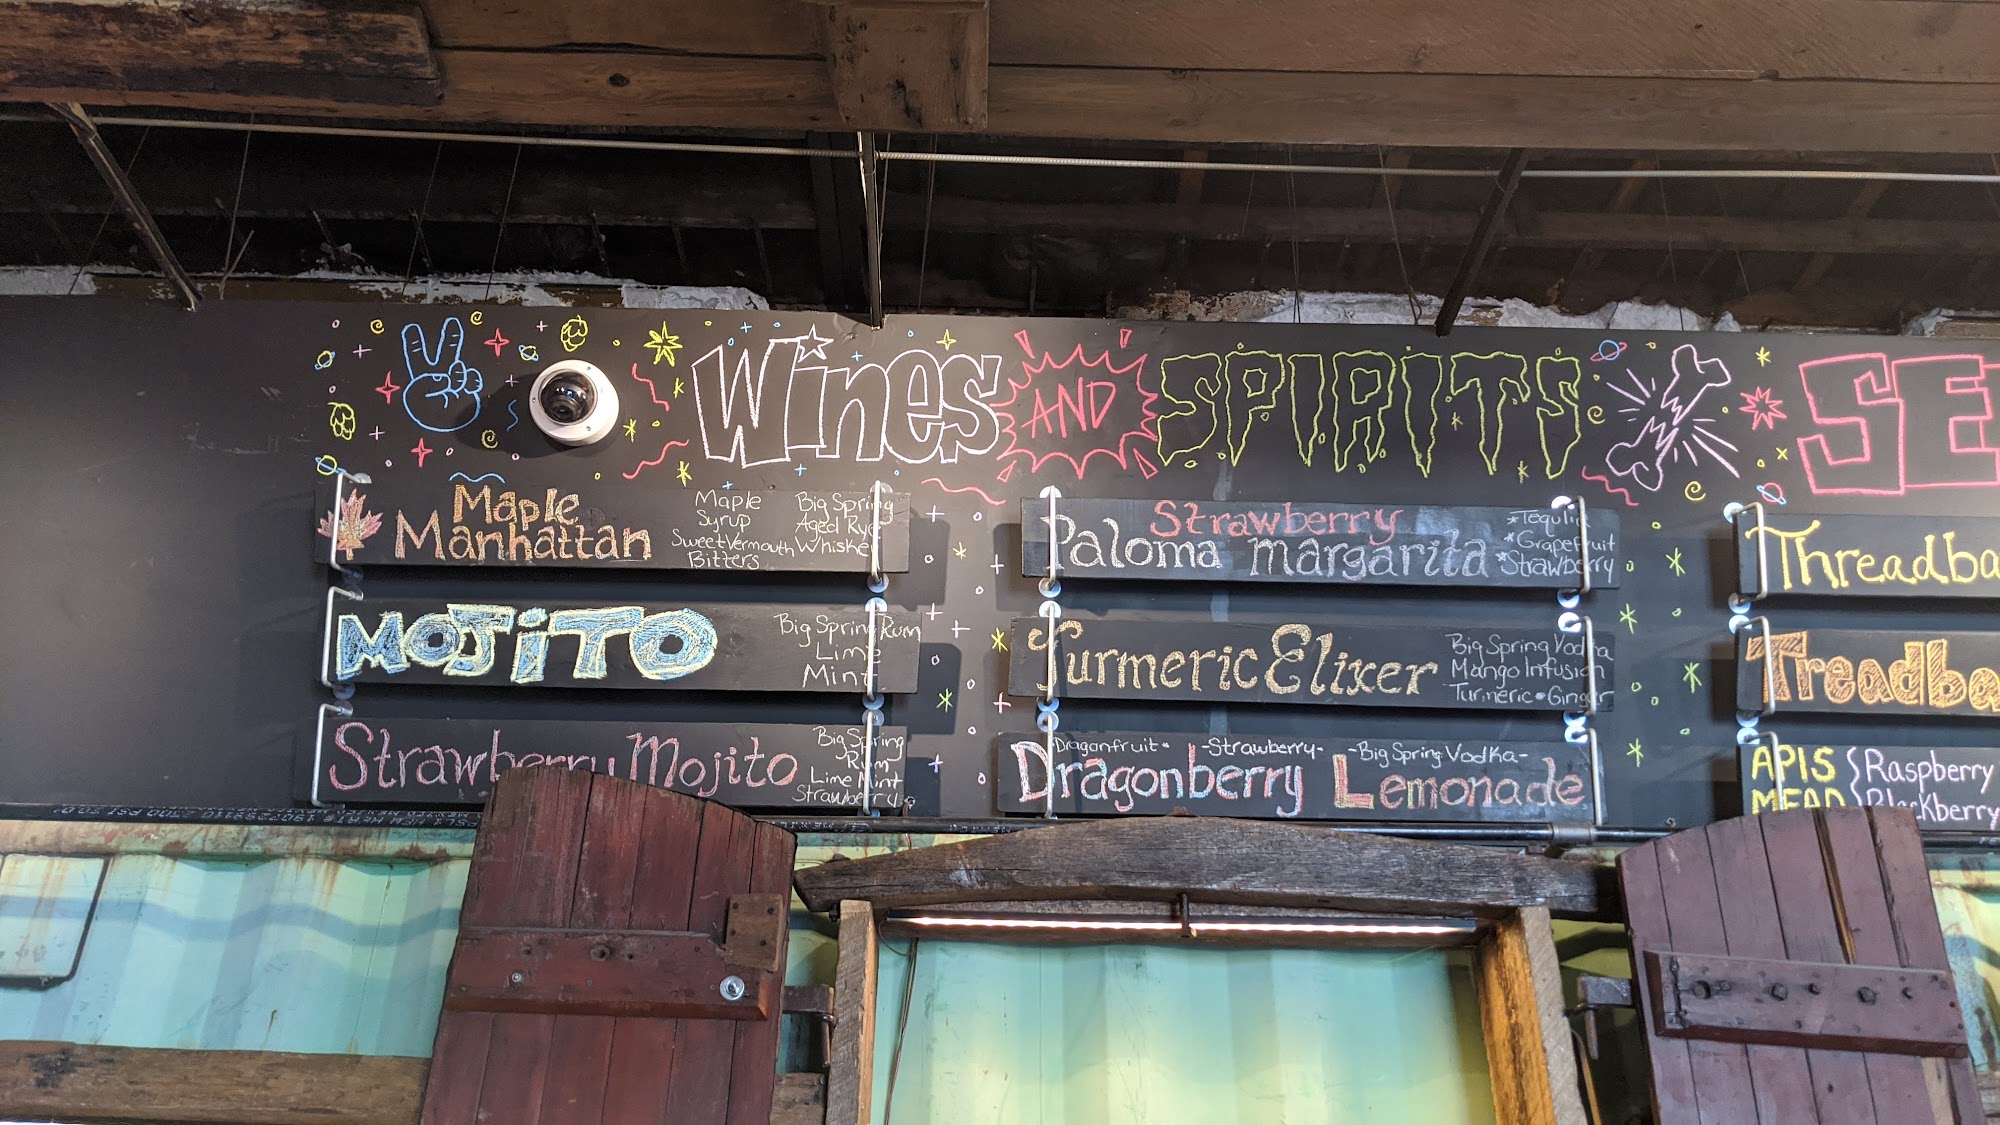 Wines AND SPIRITS
Maple
Manhattan
Maple
Syrup
Sweet Vermouth
Bitters
Big Spring
Aged Rye
Whiskey
MOJiTO
Big Spring Rum
Lime
Mint
Strawberry Mojito
Big Spring
Rum
Lime Mint
Strawberry
Strawberry
Paloma margarita
*Tequlia
*Grapefruit
*Strawberry
Turmeric Elixer
Big Spring Vodka
Mango Infusion
Turmeric • Ginger
Dragonfruit • -Strawberry- -Big Spring Vodka-
Dragonberry Lemonade
SE
Threadba
Treadba
APIS
MEAD
Raspberry
Blackberry